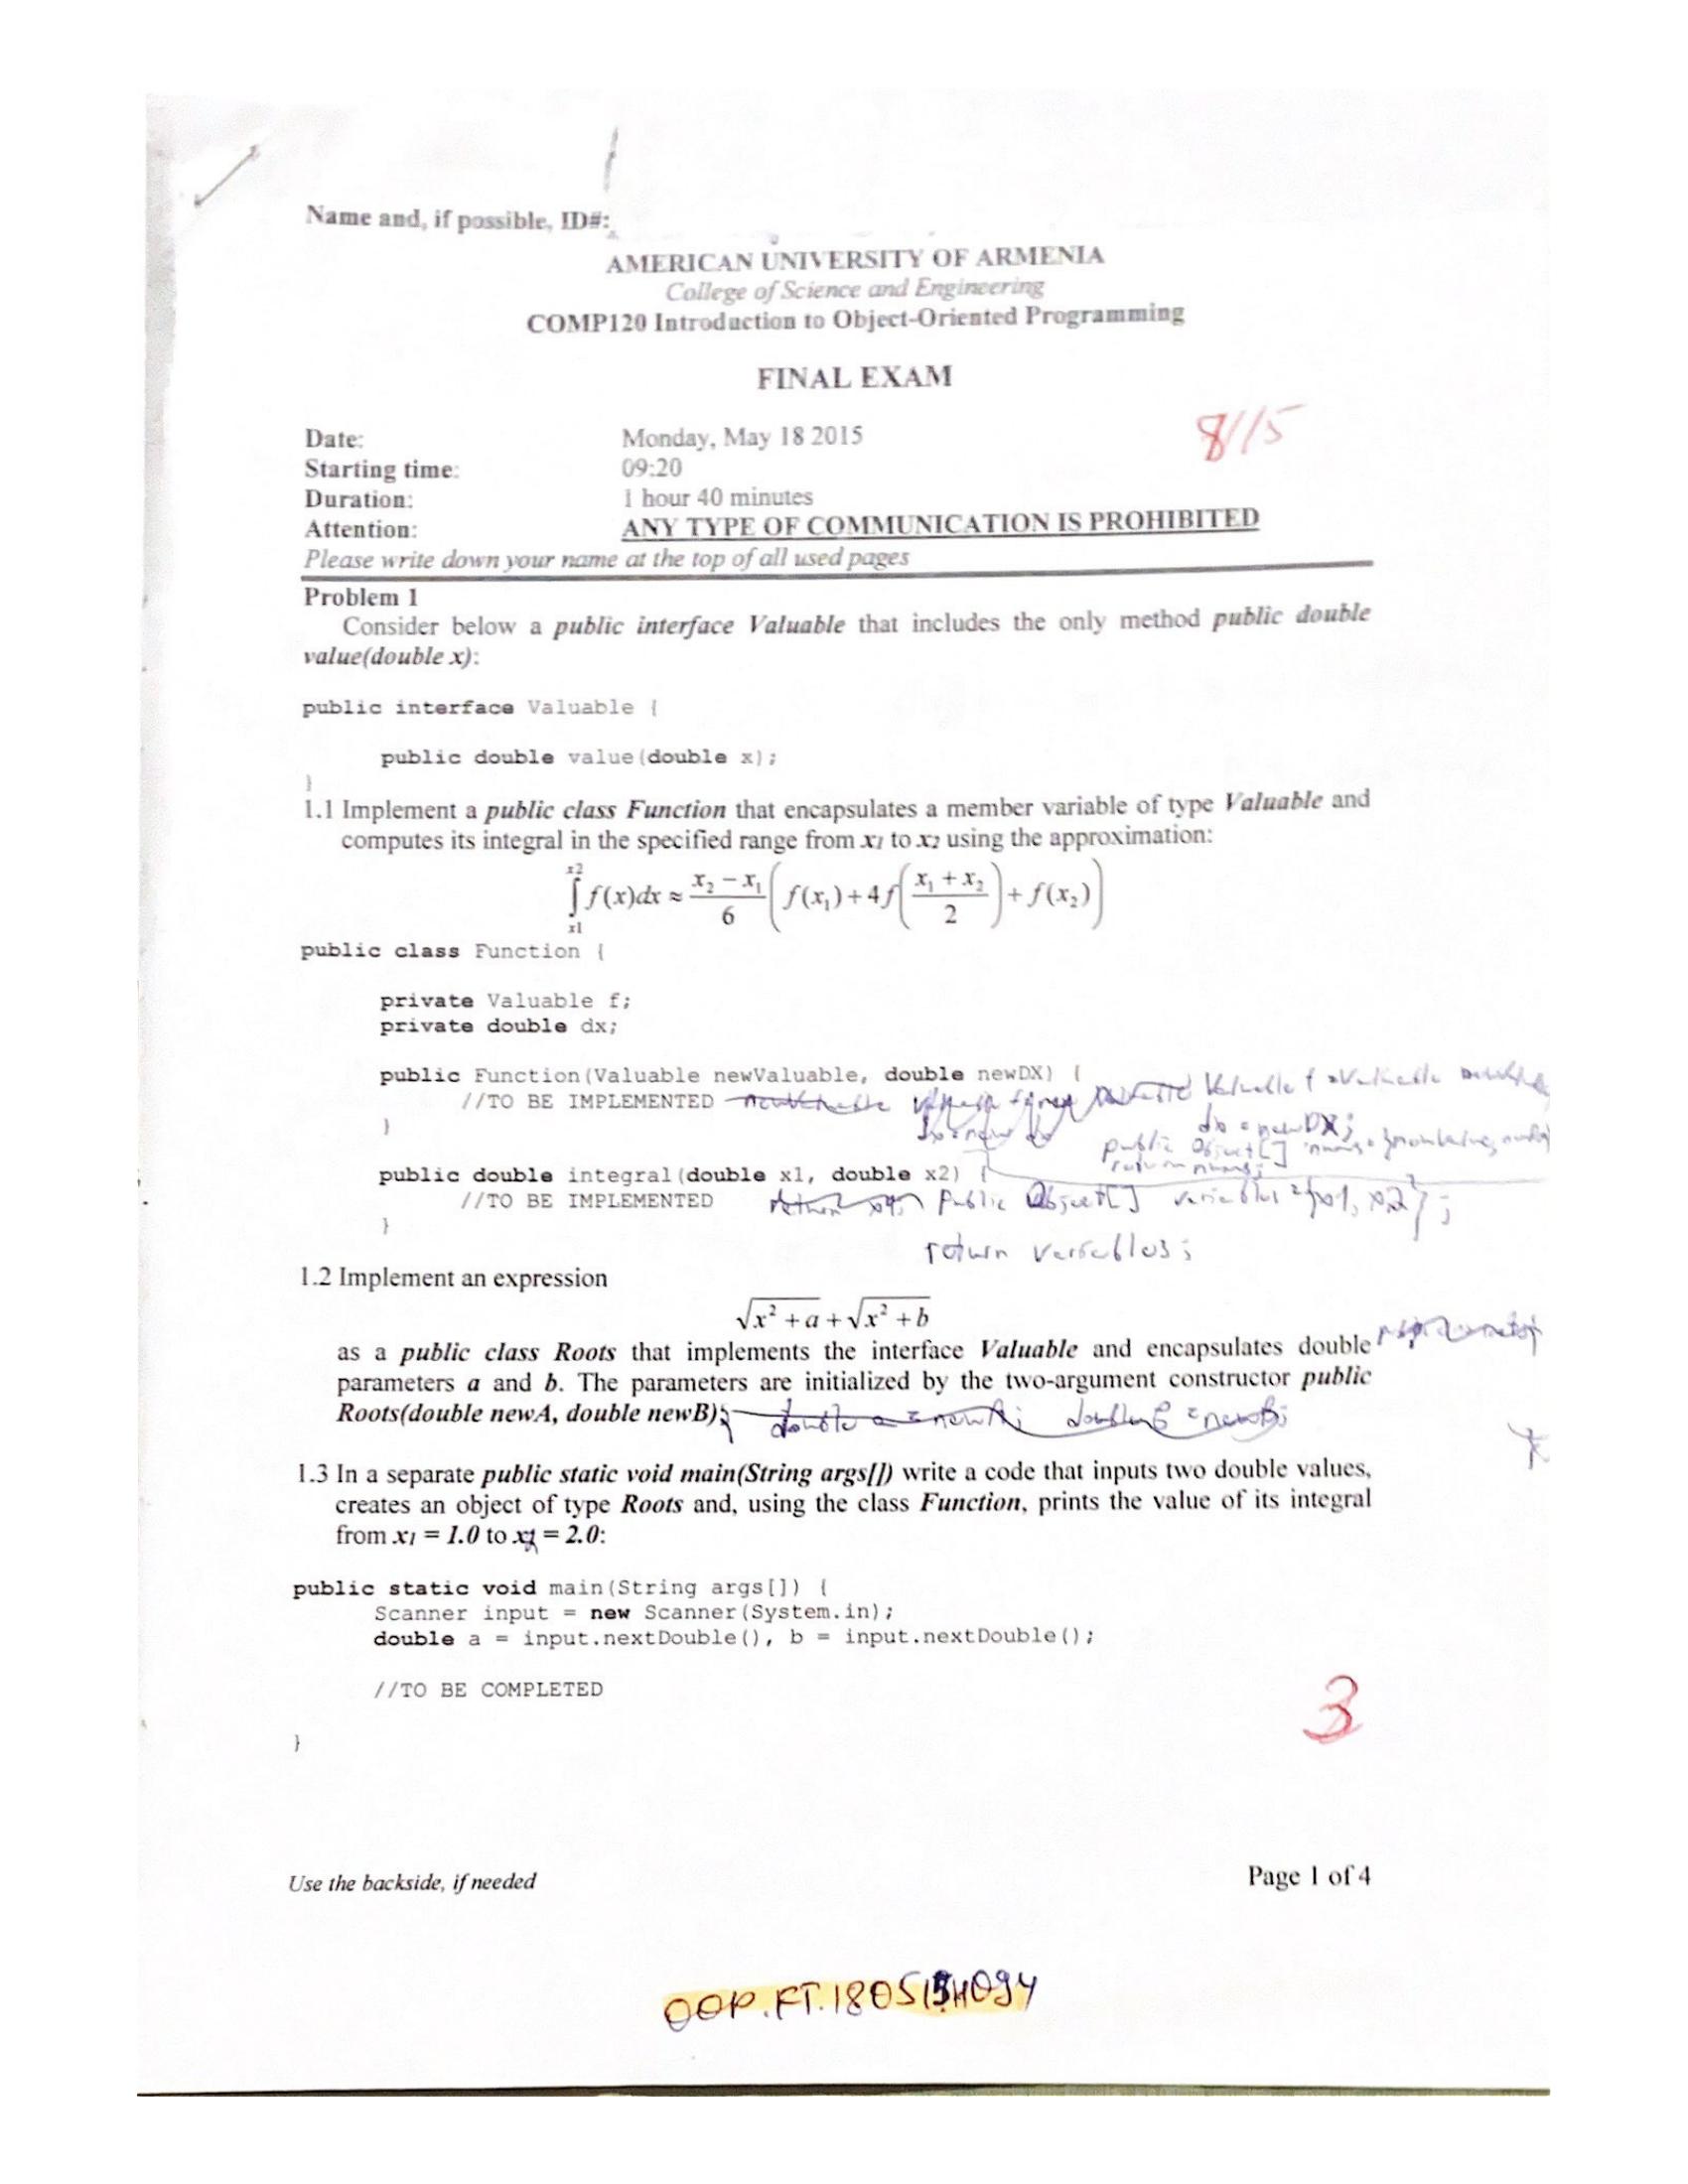 Name and, if possible, ID#:
AMERICAN UNIVERSITY OF ARMENIA
College of Science and Engineering
COMP120 Introduction to Object-Oriented Programming
FINAL EXAM
8/15
Date: Monday, May 18 2015
Starting time: 09:20
Duration: 1 hour 40 minutes
Attention: ANY TYPE OF COMMUNICATION IS PROHIBITED
Please write down your name at the top of all used pages
Problem 1
Consider below a public interface Valuable that includes the only method public double
value(double x):
public interface Valuable {
public double value(double x);
}
1.1 Implement a public class Function that encapsulates a member variable of type Valuable and
computes its integral in the specified range from x1 to x2 using the approximation:
∫_{x1}^{x2} f(x)dx ≈ (x₂ − x₁)/6 ( f(x₁) + 4f( (x₁ + x₂)/2 ) + f(x₂) )
public class Function {
private Valuable f;
private double dx;
public Function(Valuable newValuable, double newDX) {
//TO BE IMPLEMENTED
dx = newDX;
}
public Object[] nums =
return nums;
public double integral(double x1, double x2) {
//TO BE IMPLEMENTED public Object[] variables = {x1, x2};
}
return variables;
1.2 Implement an expression
√(x² + a) + √(x² + b)
as a public class Roots that implements the interface Valuable and encapsulates double
parameters a and b. The parameters are initialized by the two-argument constructor public
Roots(double newA, double newB); double a = newA; double b = newB;
1.3 In a separate public static void main(String args[]) write a code that inputs two double values,
creates an object of type Roots and, using the class Function, prints the value of its integral
from x1 = 1.0 to x2 = 2.0:
public static void main(String args[]) {
Scanner input = new Scanner(System.in);
double a = input.nextDouble(), b = input.nextDouble();
//TO BE COMPLETED
3
}
Use the backside, if needed Page 1 of 4
OOP.FT.180515H094